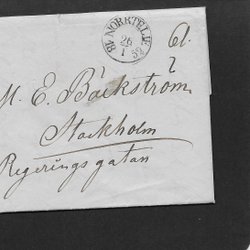 NORRTELJE
26
1
M. E. Bäckström
Stockholm
Regerings gatan